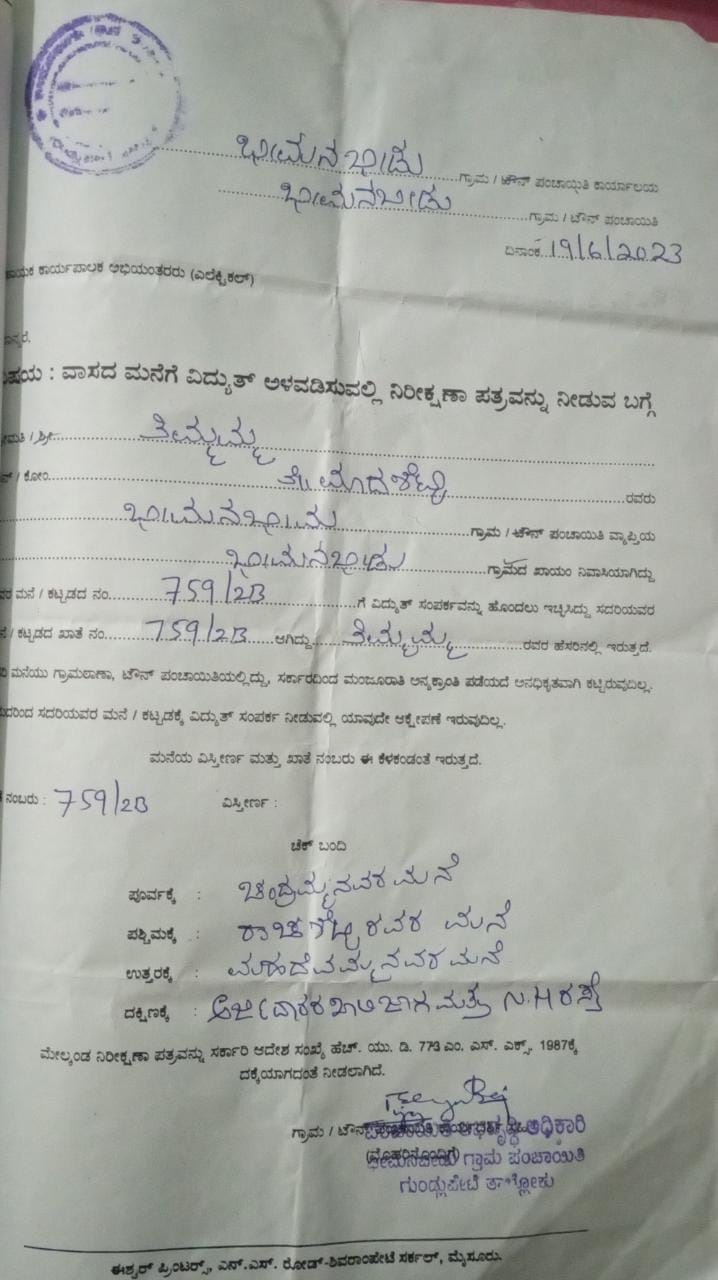 ಭೀಮನಬೀಡು ಗ್ರಾಮ / ಟೌನ್ ಪಂಚಾಯಿತಿ ಕಾರ್ಯಾಲಯ
ಭೀಮನಬೀಡು ಗ್ರಾಮ / ಟೌನ್ ಪಂಚಾಯಿತಿ
ದಿನಾಂಕ 19/6/2023
ಕಾರ್ಯಪಾಲಕ ಅಭಿಯಂತರರು (ಎಲೆಕ್ಟ್ರಿಕಲ್)
: ವಾಸದ ಮನೆಗೆ ವಿದ್ಯುತ್ ಅಳವಡಿಸುವಲ್ಲಿ ನಿರೀಕ್ಷಣಾ ಪತ್ರವನ್ನು ನೀಡುವ ಬಗ್ಗೆ
/ ಶ್ರೀ ತಿಮ್ಮಮ್ಮ
/ ಕೋಂ ರವರು
ಗ್ರಾಮ / ಟೌನ್ ಪಂಚಾಯಿತಿ ವ್ಯಾಪ್ತಿಯ
ಭೀಮನಬೀಡು ಗ್ರಾಮದ ಖಾಯಂ ನಿವಾಸಿಯಾಗಿದ್ದು
ಮನೆ / ಕಟ್ಟಡದ ನಂ. 759/2B ಗೆ ವಿದ್ಯುತ್ ಸಂಪರ್ಕವನ್ನು ಹೊಂದಲು ಇಚ್ಛಿಸಿದ್ದು ಸದರಿಯವರ
/ ಕಟ್ಟಡದ ಖಾತೆ ನಂ. 759/2B ಆಗಿದ್ದು ತಿಮ್ಮಮ್ಮ ರವರ ಹೆಸರಿನಲ್ಲಿ ಇರುತ್ತದೆ.
ಮನೆಯು ಗ್ರಾಮಠಾಣಾ, ಟೌನ್ ಪಂಚಾಯಿತಿಯಲ್ಲಿದ್ದು, ಸರ್ಕಾರದಿಂದ ಮಂಜೂರಾತಿ ಅನ್ಯಕ್ರಾಂತಿ ಪಡೆಯದೆ ಅನಧಿಕೃತವಾಗಿ ಕಟ್ಟಿರುವುದಿಲ್ಲ.
ಸದರಿಯವರ ಮನೆ / ಕಟ್ಟಡಕ್ಕೆ ವಿದ್ಯುತ್ ಸಂಪರ್ಕ ನೀಡುವಲ್ಲಿ ಯಾವುದೇ ಆಕ್ಷೇಪಣೆ ಇರುವುದಿಲ್ಲ.
ಮನೆಯ ವಿಸ್ತೀರ್ಣ ಮತ್ತು ಖಾತೆ ನಂಬರು ಈ ಕೆಳಕಂಡಂತೆ ಇರುತ್ತದೆ.
ನಂಬರು : 759/2B ವಿಸ್ತೀರ್ಣ :
ಚೆಕ್ ಬಂದಿ
ಪೂರ್ವಕ್ಕೆ : ಚಂದ್ರಮ್ಮನವರ ಮನೆ
ಪಶ್ಚಿಮಕ್ಕೆ : ರವರ ಮನೆ
ಉತ್ತರಕ್ಕೆ : ಮಹದೇವಮ್ಮನವರ ಮನೆ
ದಕ್ಷಿಣಕ್ಕೆ : ಖಾಲಿ ಜಾಗ ಮತ್ತು N.H ರಸ್ತೆ
ಮೇಲ್ಕಂಡ ನಿರೀಕ್ಷಣಾ ಪತ್ರವನ್ನು ಸರ್ಕಾರಿ ಆದೇಶ ಸಂಖ್ಯೆ ಹೆಚ್. ಯು. ಡಿ. 773 ಎಂ. ಎಸ್. ಎಕ್ಸ್. 1987ಕ್ಕೆ
ದಕ್ಕೆಯಾಗದಂತೆ ನೀಡಲಾಗಿದೆ.
ಗ್ರಾಮ / ಟೌನ್
ಪಂಚಾಯಿತಿ ಅಭಿವೃದ್ಧಿ ಅಧಿಕಾರಿ
(ಮೊಹರಿನೊಂದಿಗೆ)
ಭೀಮನಬೀಡು ಗ್ರಾಮ ಪಂಚಾಯಿತಿ
ಗುಂಡ್ಲುಪೇಟೆ ತಾಲ್ಲೋಕು
ಈಶ್ವರ್ ಪ್ರಿಂಟರ್ಸ್, ಎನ್.ಎಸ್. ರೋಡ್-ಶಿವರಾಂಪೇಟೆ ಸರ್ಕಲ್, ಮೈಸೂರು.